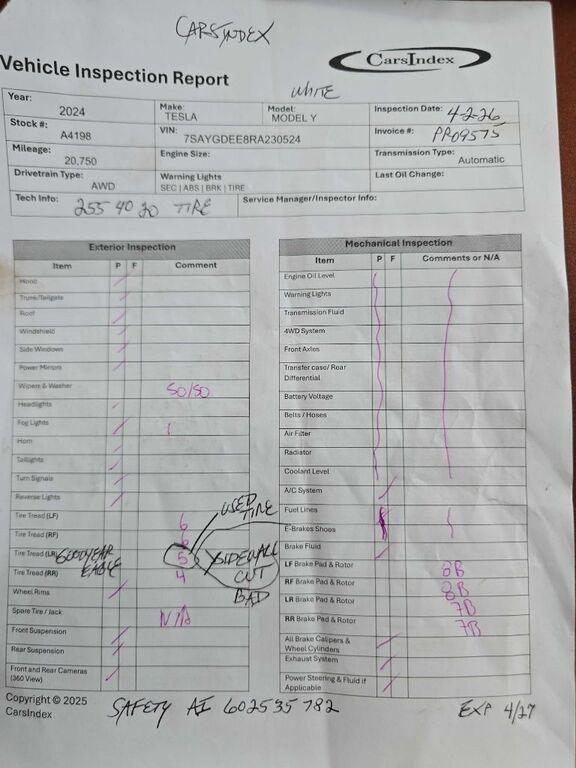 CARSINDEX
CarsIndex
Vehicle Inspection Report
WHITE
Year: 2024 Make: TESLA Model: MODEL Y Inspection Date: 4-2-26
Stock #: A4198 VIN: 7SAYGDEE8RA230524 Invoice #: PR09575
Mileage: 20,750 Engine Size: Transmission Type: Automatic
Drivetrain Type: AWD Warning Lights SEC | ABS | BRK | TIRE Last Oil Change:
Tech Info: 255 40 20 TIRE Service Manager/Inspector Info:
Exterior Inspection
Item P F Comment
Hood
Trunk/Tailgate
Roof
Windshield
Side Windows
Power Mirrors
Wipers & Washer 50/50
Headlights
Fog Lights
Horn
Taillights
Turn Signals
Reverse Lights
USED TIRE
Tire Tread (LF) 6
Tire Tread (RF) 6
Tire Tread (LR) GOODYEAR 5 SIDEWALL
Tire Tread (RR) EAGLE 4 CUT
Wheel Rims BAD
Spare Tire / Jack N/A
Front Suspension
Rear Suspension
Front and Rear Cameras
(360 View)
Mechanical Inspection
Item P F Comments or N/A
Engine Oil Level
Warning Lights
Transmission Fluid
4WD System
Front Axles
Transfer case/ Rear
Differential
Battery Voltage
Belts / Hoses
Air Filter
Radiator
Coolant Level
A/C System
Fuel Lines
E-Brakes Shoes
Brake Fluid
LF Brake Pad & Rotor 8B
RF Brake Pad & Rotor 8B
LR Brake Pad & Rotor 7B
RR Brake Pad & Rotor 7B
All Brake Calipers &
Wheel Cylinders
Exhaust System
Power Steering & Fluid if
Applicable
Copyright © 2025
CarsIndex
SAFETY AI 602535782 EXP 4/27